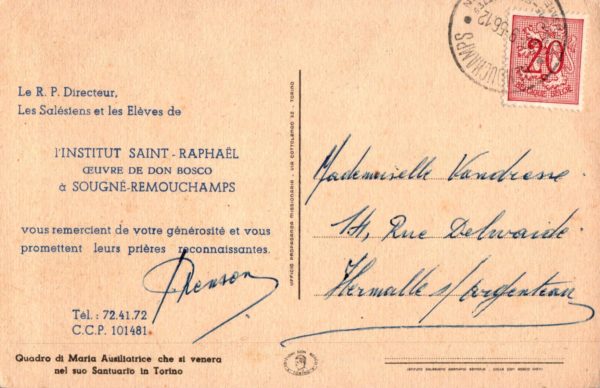 Le R. P. Directeur,
Les Salésiens et les Elèves de
l'INSTITUT SAINT-RAPHAËL
ŒUVRE DE DON BOSCO
à SOUGNÉ-REMOUCHAMPS
vous remercient de votre générosité et vous
promettent leurs prières reconnaissantes.
Tél. : 72.41.72
C.C.P. 101481
Quadro di Maria Ausiliatrice che si venera
nel suo Santuario in Torino
UFFICIO PROPAGANDA MISSIONARIA - VIA COTTOLENGO 32 - TORINO
20
Mademoiselle Vandresse
14, Rue Delwaide
Hermalle s/Argenteau